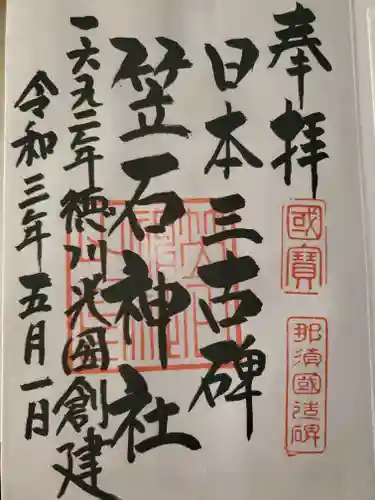 奉拝
國寶
那須國造碑
日本三古碑
笠石神社
一六九二年徳川光圀創建
令和三年五月一日